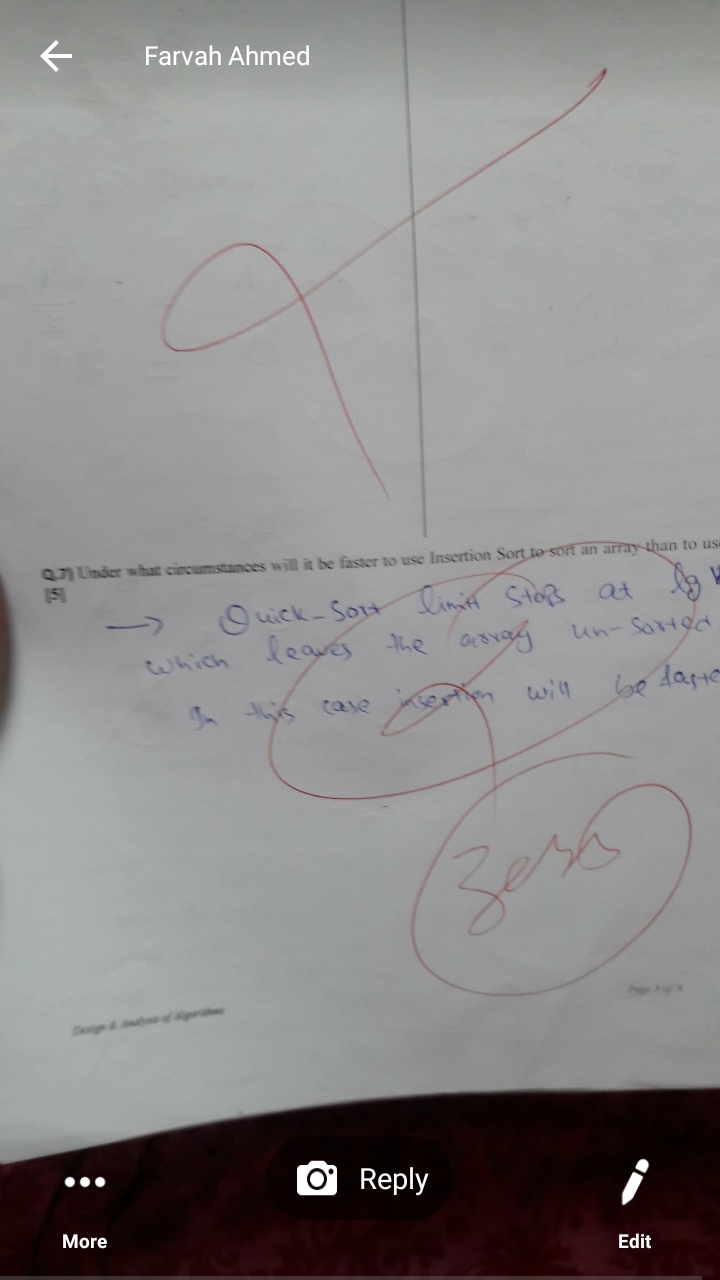 Farvah Ahmed
Q.7) Under what circumstances will it be faster to use Insertion Sort to sort an array than to use
[5]
→ Quick-Sort limit stops at lg
which leaves the array un-sorted
In this case insertion will be faste
zero
Page 5 of
Design & Analysis of Algorithms
Reply
More
Edit